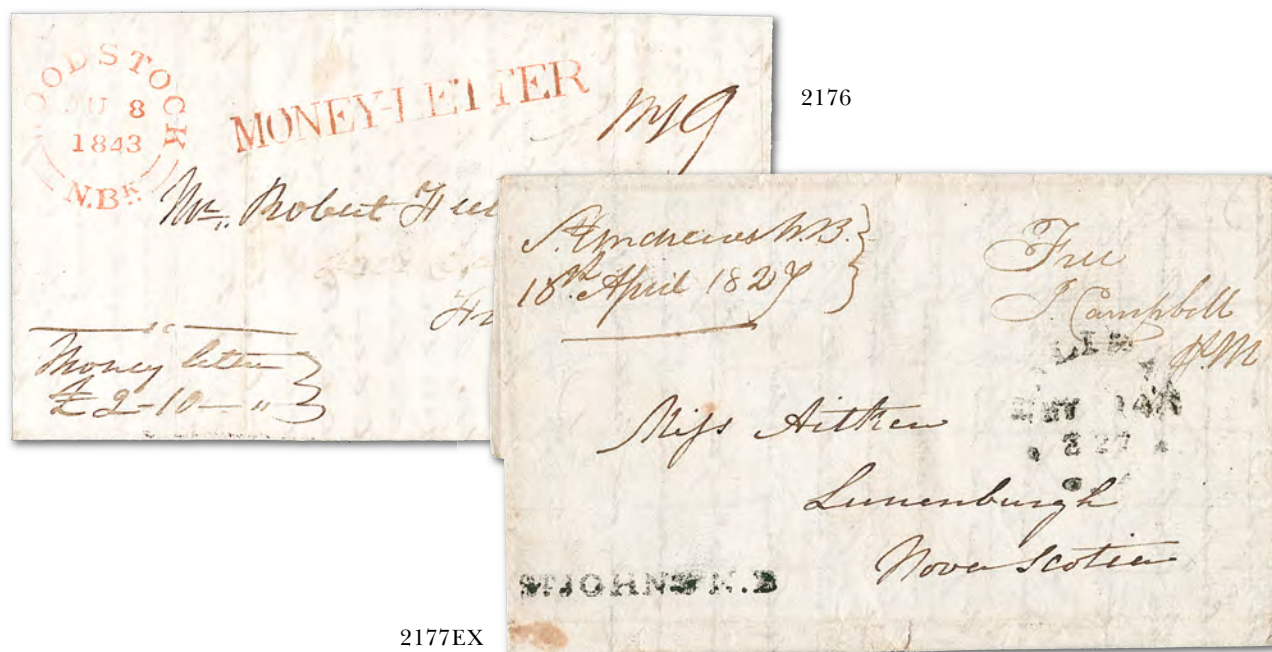 WOODSTOCK
JU 8
1843
N.BK
MONEY-LETTER
2176
Mr. Robert
Money letter
£2-10-"
St Andrews N.B.
18th April 1827
Free
J. Campbell
P.M
Miss Aitken
Lunenburgh
Nova Scotia
ST.JOHNS N.B
2177EX